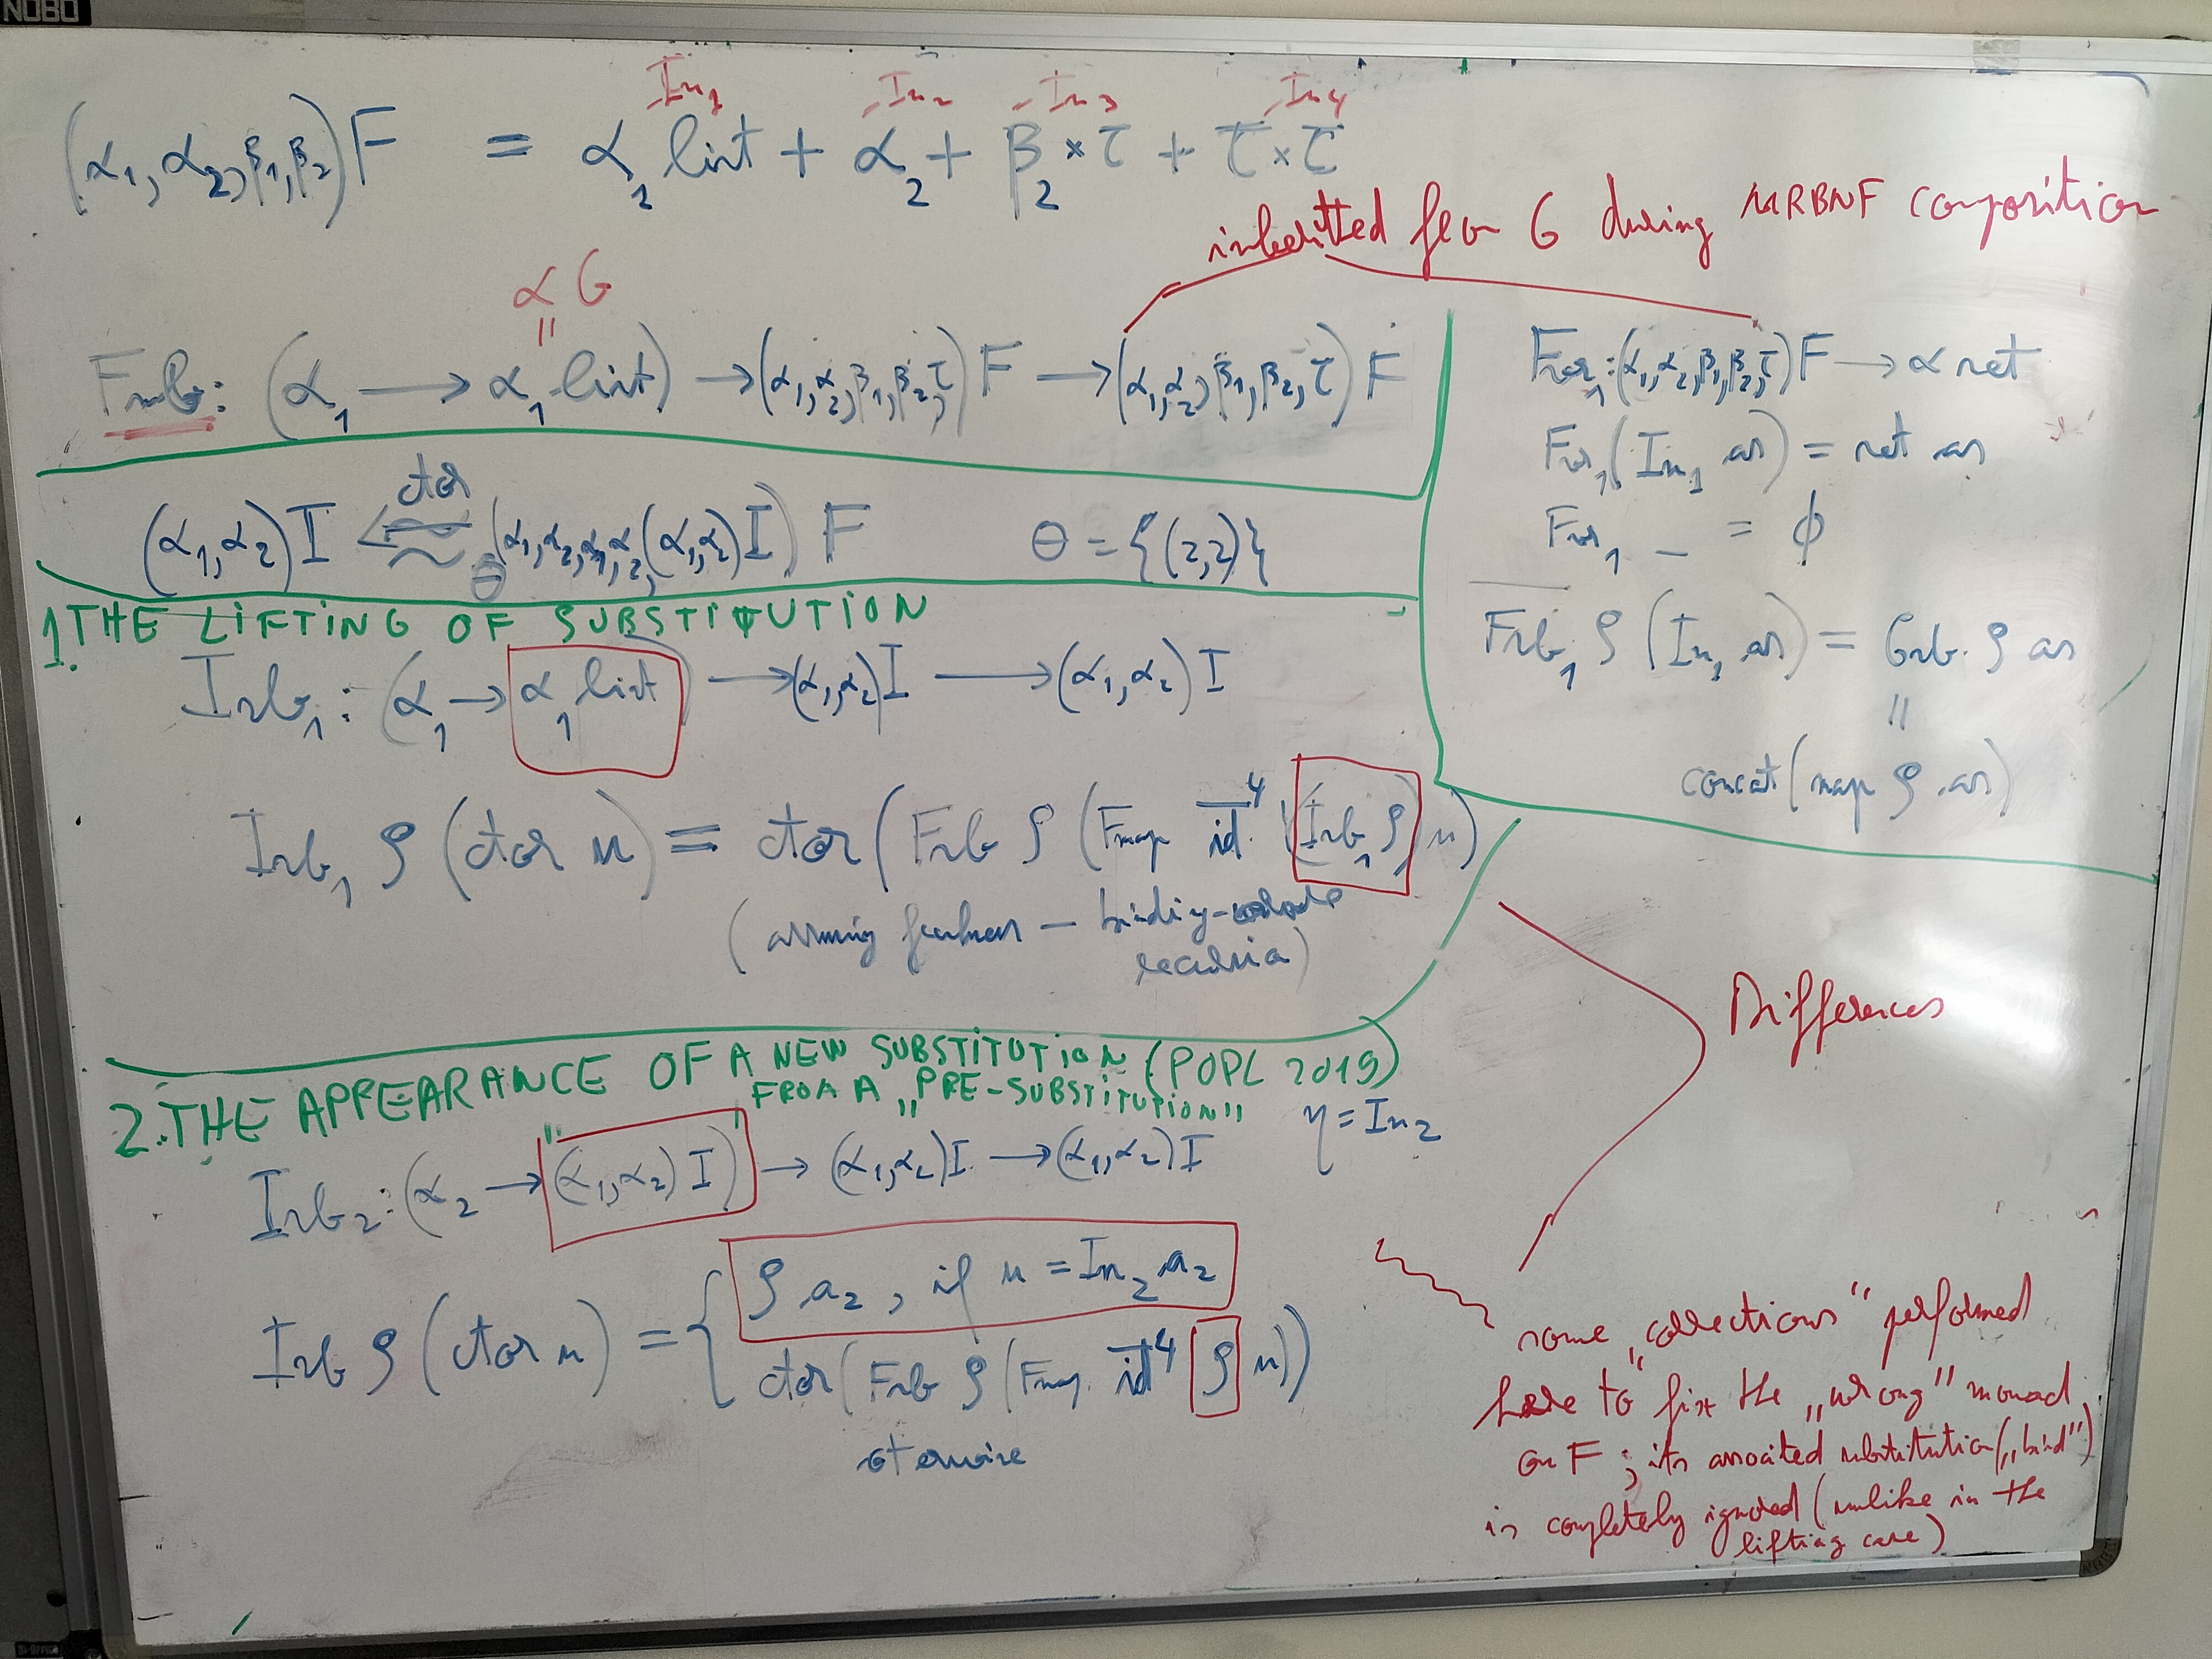 NOBO
In₁ In₂ In₃ In₄
(α₁, α₂, β₁, β₂) F = α₁ list + α₂ + β₂ × τ + τ × τ
inheritted from G during MRBNF composition
α G
=
Fsub: (α₁ → α₁ list) → (α₁, α₂, β₁, β₂, τ) F → (α₁, α₂, β₁, β₂, τ) F
(α₁, α₂) I ≃ ctor (α₁, α₂, α₁, α₂, (α₁, α₂) I) F θ = {(2,2)}
θ
Fvr₁: (α₁, α₂, β₁, β₂, τ) F → α set
Fvr₁ (In₁ as) = set as
Fvr₁ _ = ϕ
Fsub₁ ρ (In₁ as) = Gsub ρ as
=
concat (map ρ as)
1. THE LIFTING OF SUBSTITUTION
Isub₁: (α₁ → α₁ list) → (α₁, α₂) I → (α₁, α₂) I
Isub₁ ρ (ctor u) = ctor (Fsub ρ (Fmap id⁴ (Isub₁ ρ) u)
(assuming freshness – binding-aware
recursion)
Differences
2. THE APPEARANCE OF A NEW SUBSTITUTION (POPL 2019)
FROM A „PRE-SUBSTITUTION"
η = In₂
Isub₂: (α₂ → (α₁, α₂) I) → (α₁, α₂) I → (α₁, α₂) I
Isub ρ (ctor u) = { ρ a₂, if u = In₂ a₂
ctor (Fsub ρ (Fmap id⁴ ρ u))
otherwise
some „corrections" performed
here to fix the „wrong" monad
on F; its associated substitution („bind")
is completely ignored (unlike in the
lifting case)